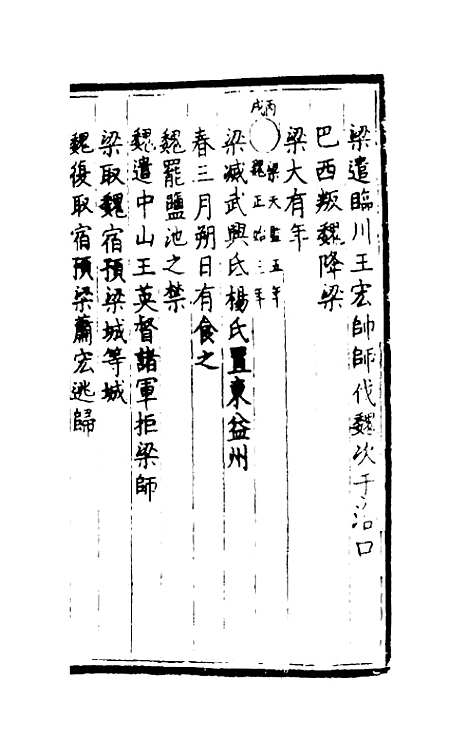 梁遣臨川王宏帥師伐魏次于洛口
巴西叛魏降梁
梁大有年
丙戌
梁天監五年
魏正始三年
梁滅武興氏楊氏置東益州
春三月朔日有食之
魏罷鹽池之禁
魏遣中山王英督諸軍拒梁師
梁取魏宿預梁城等城
魏復取宿預梁蕭宏逃歸